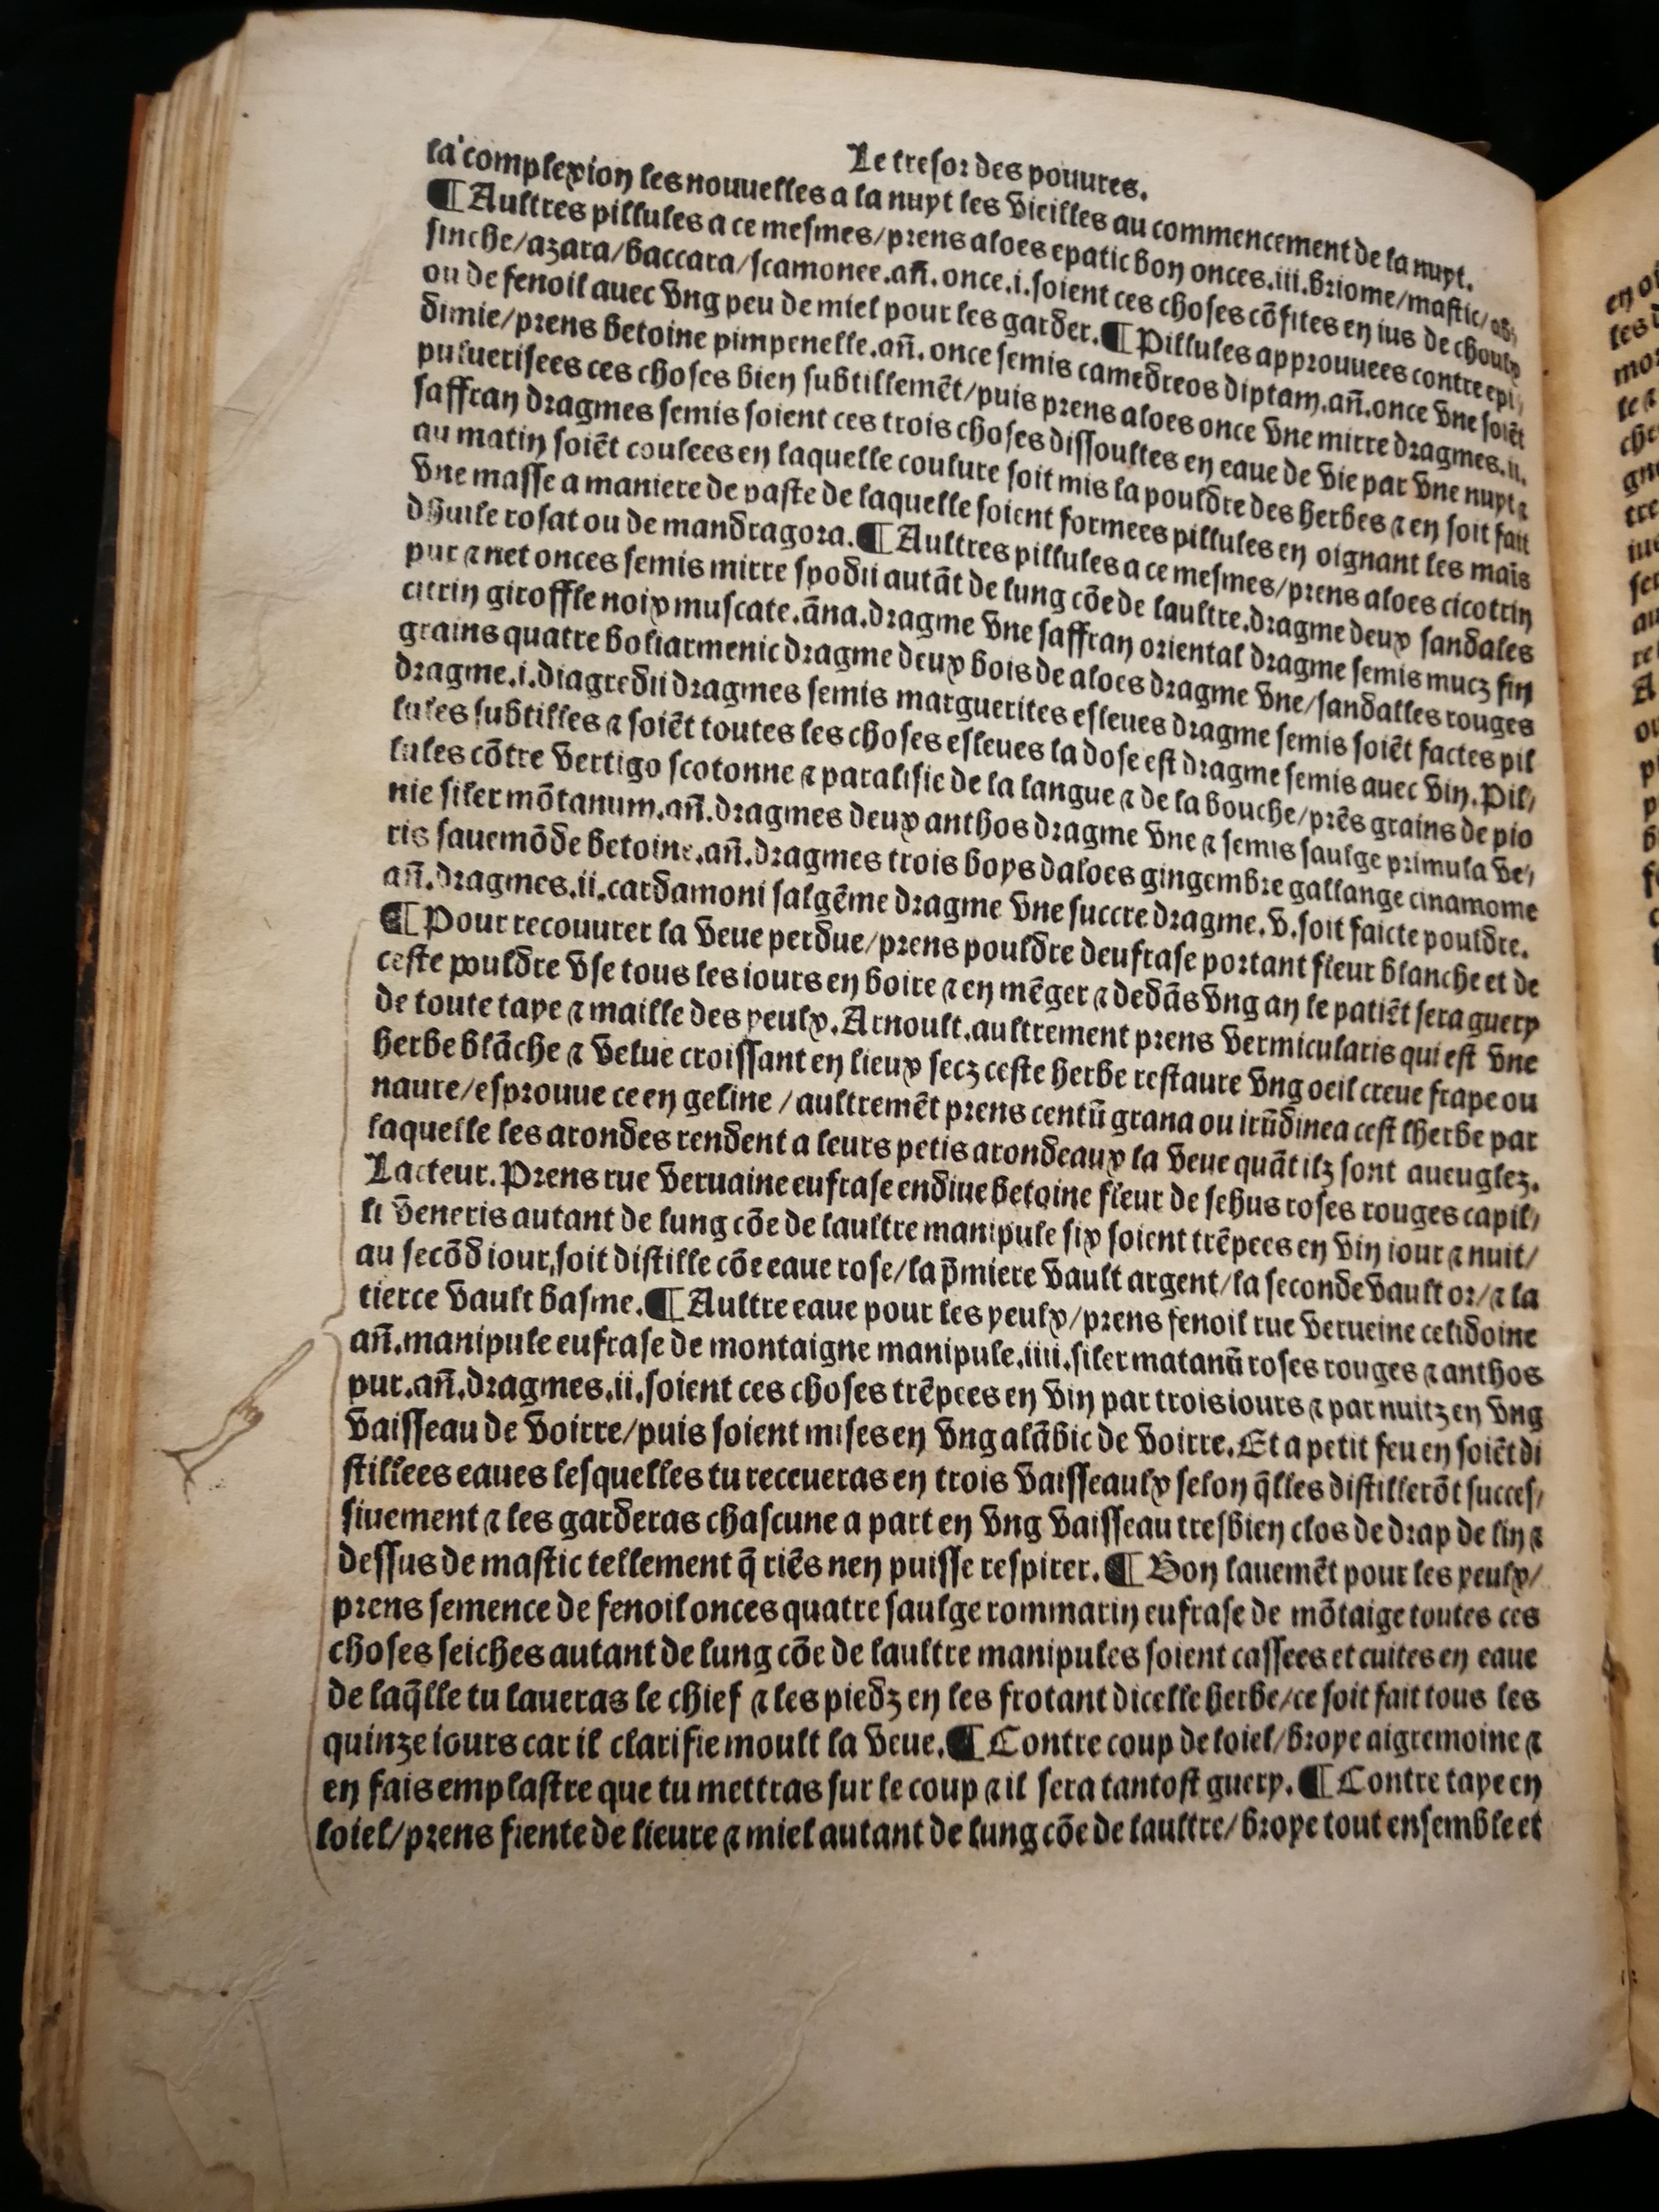 Le tresor des pouures.
la complexion les nouuelles a la nuyt les vieilles au commencement de la nuyt.
¶ Aultres pillules a ce mesmes/prens aloes epatic bon onces.iii.briome/mastic/ ab⸗
sinche/azara/baccara/scamonee.añ. once.i.soient ces choses cõfites en ius de choulx
ou de fenoil auec vng peu de miel pour les garder.¶ Pillules approuuees contre epi⸗
dimie/prens betoine pimpenelle.añ. once semis camedreos diptam.añ.once vne soiẽt
puluerisees ces choses bien subtillemẽt/puis prens aloes once vne mirre dragmes.ii.
saffran dragmes semis soient ces trois choses dissoultes en eaue de vie par vne nuyt ⁊
au matin soiẽt coulees en laquelle coulure soit mis la pouldre des herbes ⁊ en soit fait
vne masse a maniere de paste de laquelle soient formees pillules en oignant les mais
dhuile rosat ou de mandragora.¶ Aultres pillules a ce mesmes/prens aloes cicotrin
pur ⁊ net onces semis mirre spodii autãt de lung cõe de laultre.dragme deux sandales
citrin giroffle noix muscate.ãna.dragme vne saffran oriental dragme semis mucz fin
grains quatre boliarmenic dragme deux bois de aloes dragme vne/sandalles rouges
dragme.i.diagredii dragmes semis marguerites esleues dragme semis soiẽt factes pil
lules subtilles ⁊ soiẽt toutes les choses esleues la dose est dragme semis auec vin.Pil⸗
lules cõtre vertigo scotonne ⁊ paralisie de la langue ⁊ de la bouche/prẽs grains de pio
nie siler mõtanum.añ.dragmes deux anthos dragme vne ⁊ semis saulge primula ve⸗
ris sauemõde betoine.añ.dragmes trois boys daloes gingembre gallange cinamome
añ.dragmes.ii.cardamoni salgẽme dragme vne succre dragme.v.soit faicte pouldre.
¶ Pour recouurer la veue perdue/prens pouldre deufrase portant fleur blanche et de
ceste pouldre vse tous les iours en boire ⁊ en mẽger ⁊ dedãs vng an le patiẽt sera guery
de toute taye ⁊ maille des yeulx.Arnoult.aultrement prens vermicularis qui est vne
herbe blãche ⁊ velue croissant en lieux secz ceste herbe restaure vng oeil creue frape ou
naure/esprouue ce en geline /aultremẽt prens centũ grana ou irũdinea cest lherbe par
laquelle les arondes rendent a leurs petis arondeaux la veue quãt ilz sont aueuglez.
Lacteur.Prens rue veruaine eufrase endiue betoine fleur de sehus roses rouges capil⸗
li veneris autant de lung cõe de laultre manipule six soient trẽpees en vin iour ⁊ nuit/
au secõd iour,soit distille cõe eaue rose/la p̃miere vault argent/la seconde vault or/⁊ la
tierce vault basme.¶ Aultre eaue pour les yeulx/prens fenoil rue verueine celidoine
añ.manipule eufrase de montaigne manipule.iiii.siler matanũ roses rouges ⁊ anthos
pur.añ.dragmes.ii.soient ces choses trẽpees en vin par trois iours ⁊ par nuitz en vng
vaisseau de voirre/puis soient mises en vng alãbic de voirre.Et a petit feu en soiẽt di
stillees eaues lesquelles tu receueras en trois vaisseaulx selon q̃lles distillerõt succes⸗
siuement ⁊ les garderas chascune a part en vng vaisseau tresbien clos de drap de lin ⁊
dessus de mastic tellement q̃ riẽs nen puisse respirer.¶ Bon lauemẽt pour les yeulx/
prens semence de fenoil onces quatre saulge rommarin eufrase de mõtaige toutes ces
choses seiches autant de lung cõe de laultre manipules soient cassees et cuites en eaue
de laq̃lle tu laueras le chief ⁊ les piedz en les frotant dicelle herbe/ce soit fait tous les
quinze iours car il clarifie moult la veue.¶ Contre coup de loiel/broye aigremoine ⁊
en fais emplastre que tu mettras sur le coup ⁊ il sera tantost guery.¶ Contre taye en
loiel/prens fiente de lieure ⁊ miel autant de lung cõe de laultre/broye tout ensemble et